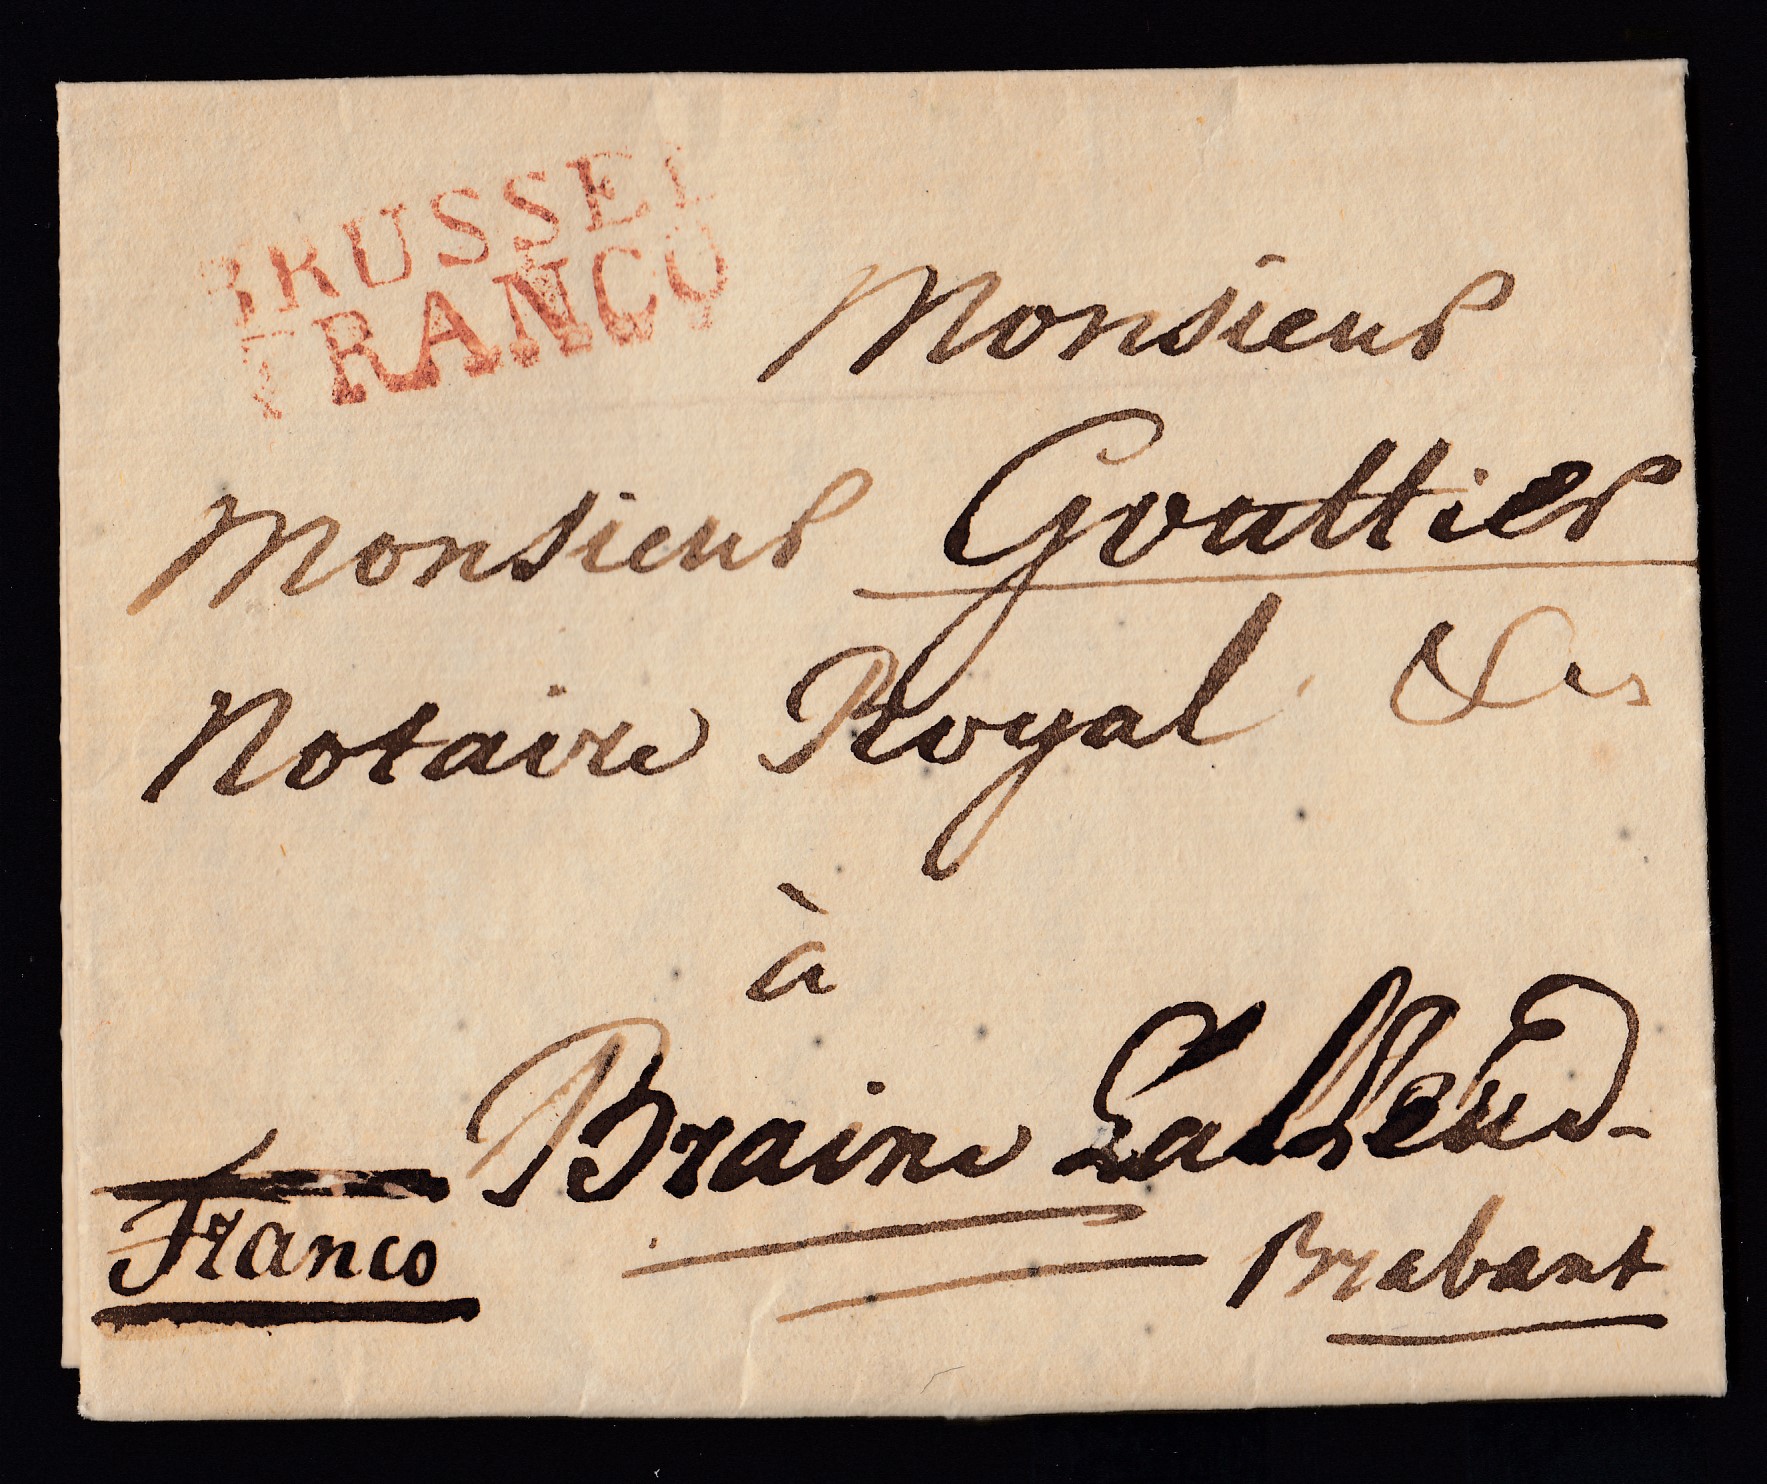 BRUSSEL
FRANCO
Monsieur
Monsieur Gouttier
Notaire Royal &
à
Braine Lalleud
Brabant
Franco